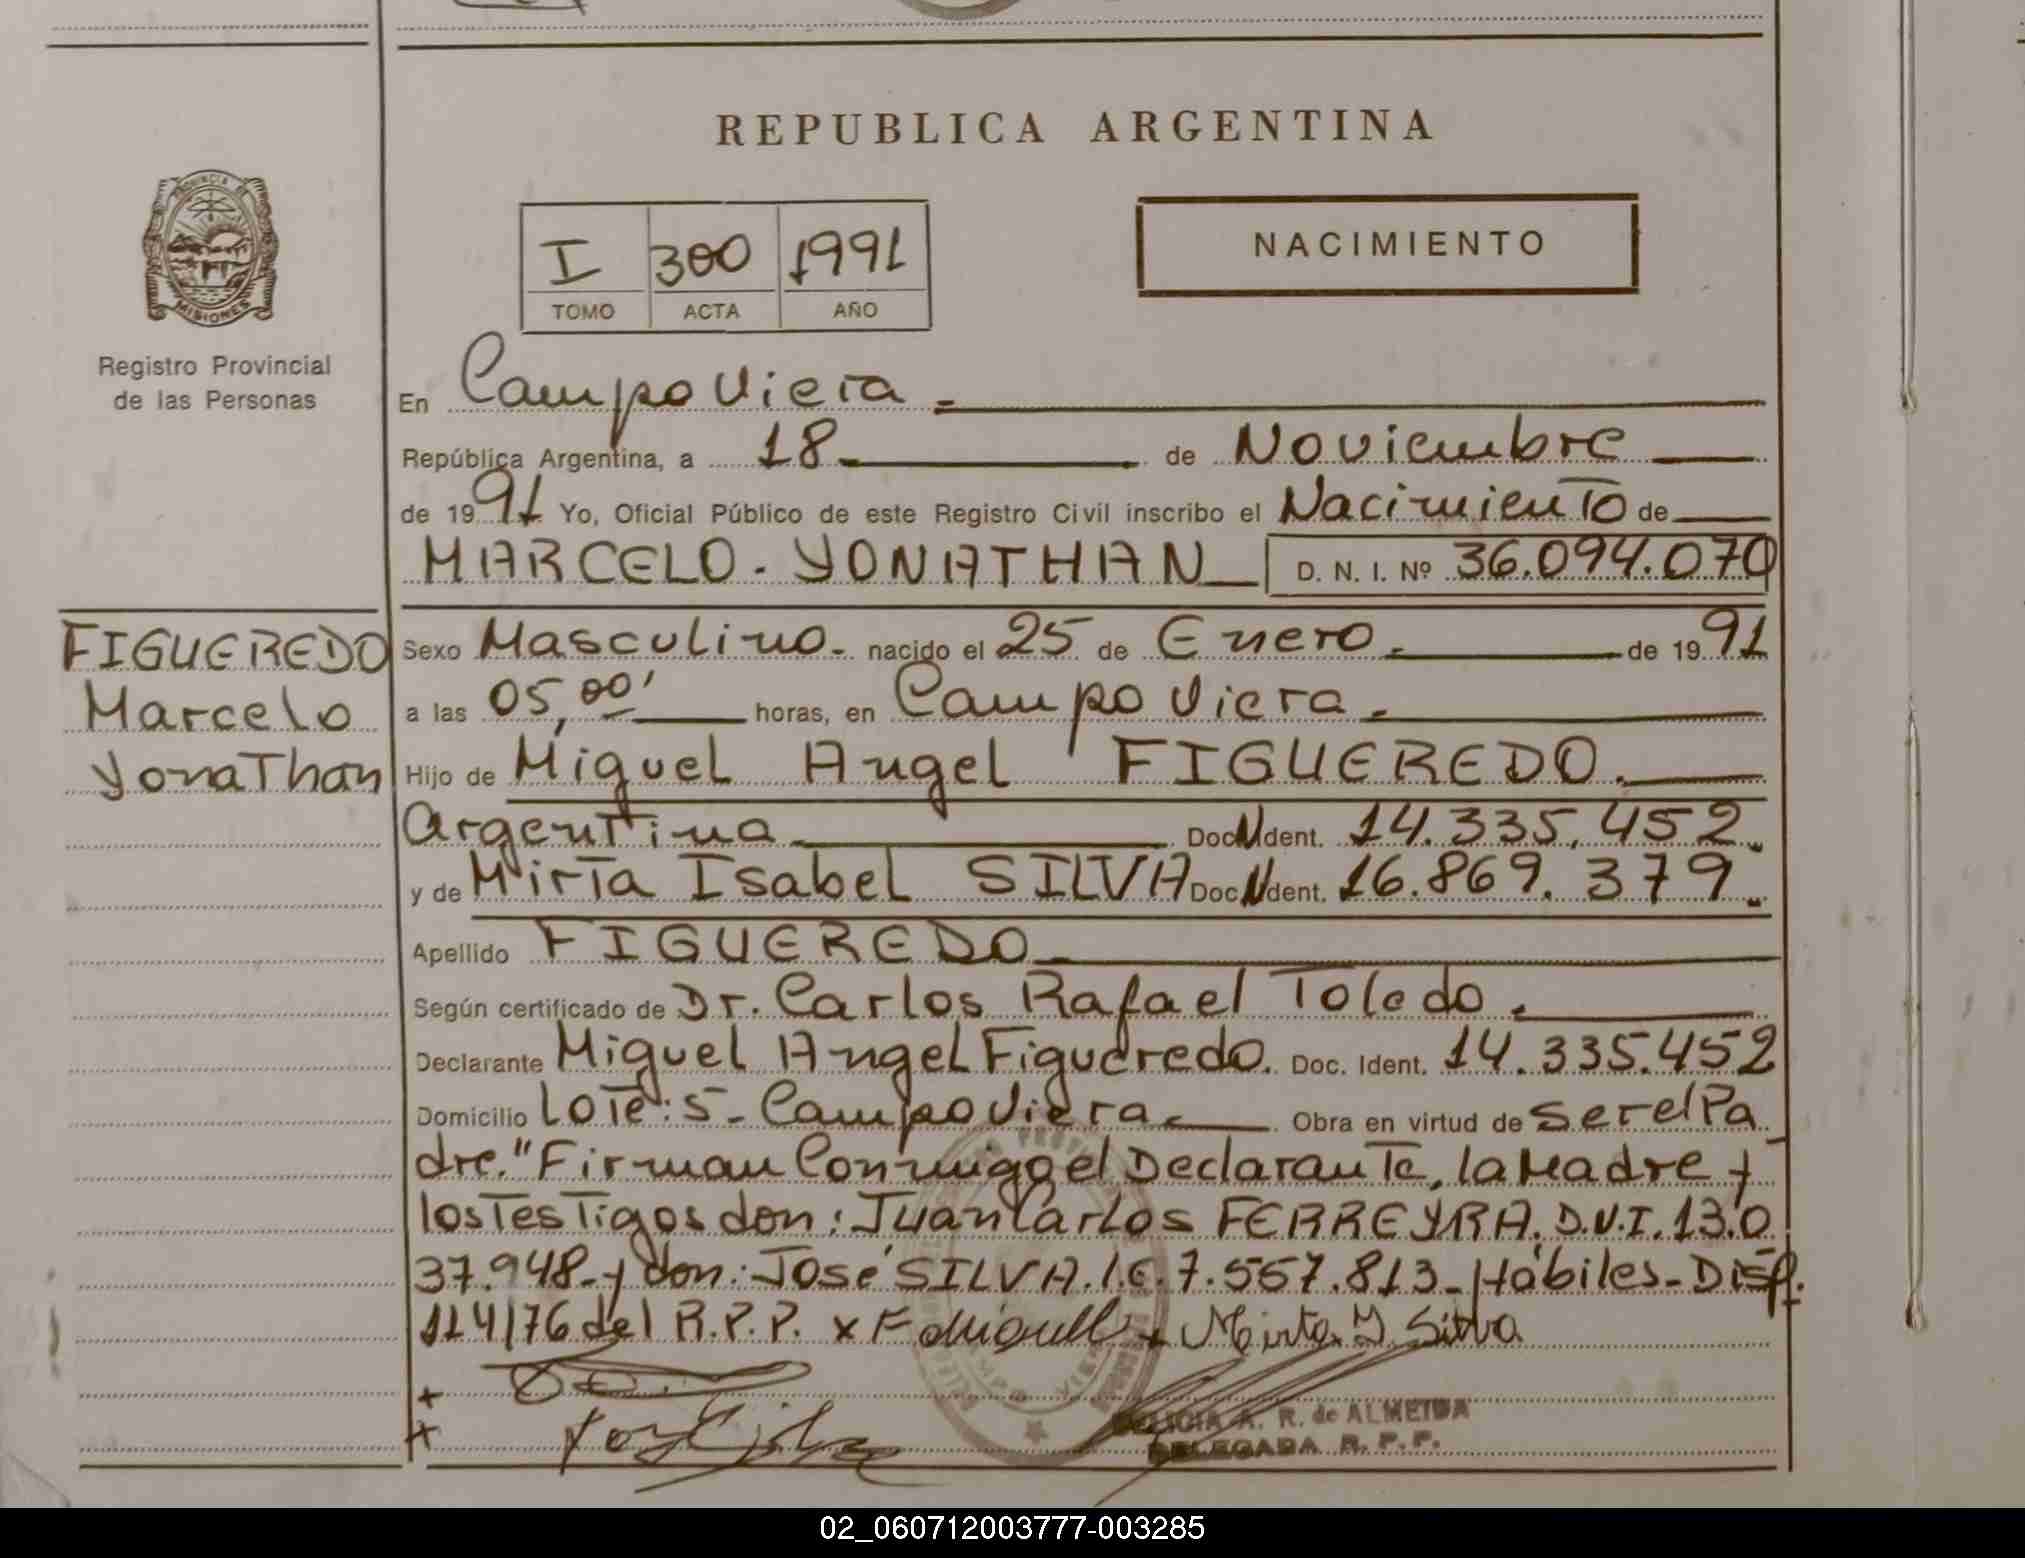 REPUBLICA ARGENTINA
PROVINCIA DE
MISIONES
Registro Provincial
de las Personas
I 300 1991
TOMO ACTA AÑO
NACIMIENTO
En Campo Viera
República Argentina, a 18 de Noviembre
de 1991 Yo, Oficial Público de este Registro Civil inscribo el Nacimiento de
MARCELO - YONATHAN D. N. I. Nº 36.094.070
FIGUEREDO
Marcelo
Yonathan
Sexo Masculino. nacido el 25 de Enero. de 1991
a las 05,00' horas, en Campo Viera.
Hijo de Miguel Angel FIGUEREDO.
Argentina Doc. Ident. 14.335.452
y de Mirta Isabel SILVA Doc. Ident. 16.869.379
Apellido FIGUEREDO
Según certificado de Dr. Carlos Rafael Toledo.
Declarante Miguel Angel Figueredo. Doc. Ident. 14.335.452
Domicilio Lote: 5- Campo Viera Obra en virtud de Ser el Pa
dre." Firman Conmigo el Declarante, la Madre y
los Testigos don: Juan Carlos FERREYRA. D.N.I. 13.0
37.948- y don: José SILVA. I.E. 7.557.813- Hábiles- Disp.
114/76 del R.P.P. x F Miguel x Mirta I. Silva
A. R. de ALMEIDA
DELEGADA R. P. P.
02_060712003777-003285